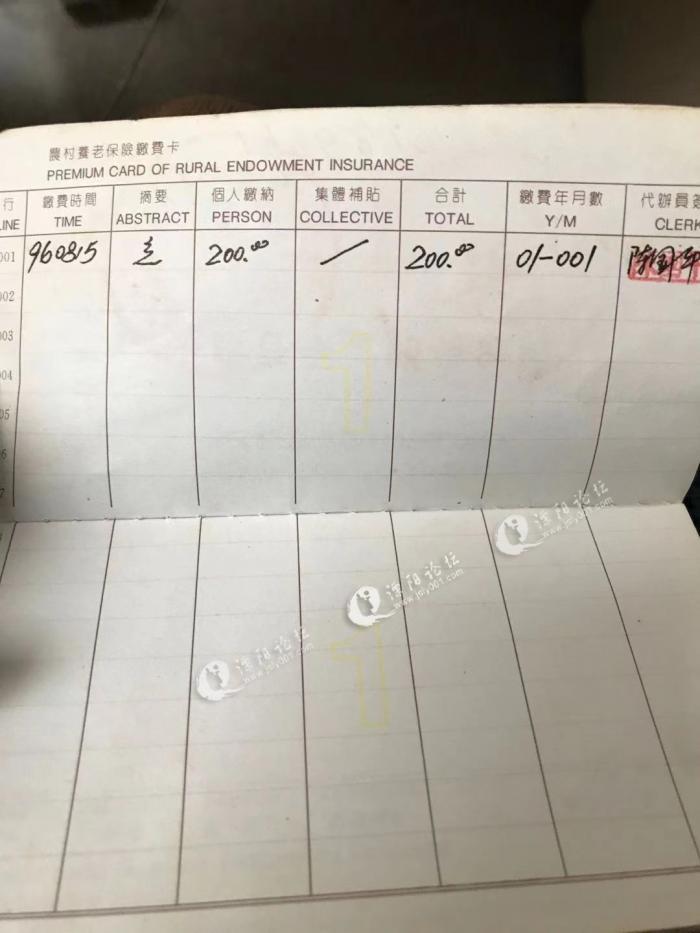 農村養老保險繳費卡
PREMIUM CARD OF RURAL ENDOWMENT INSURANCE
行 繳費時間 摘要 個人繳納 集體補貼 合計 繳費年月數 代辦員
LINE TIME ABSTRACT PERSON COLLECTIVE TOTAL Y/M CLERK
001 960815 200.00 / 200.00 01-001
002
003
004
05
6
7
1
溧阳论坛
www.jsly001.com
溧阳论坛
www.jsly001.com
1
溧阳论坛
www.jsly001.com